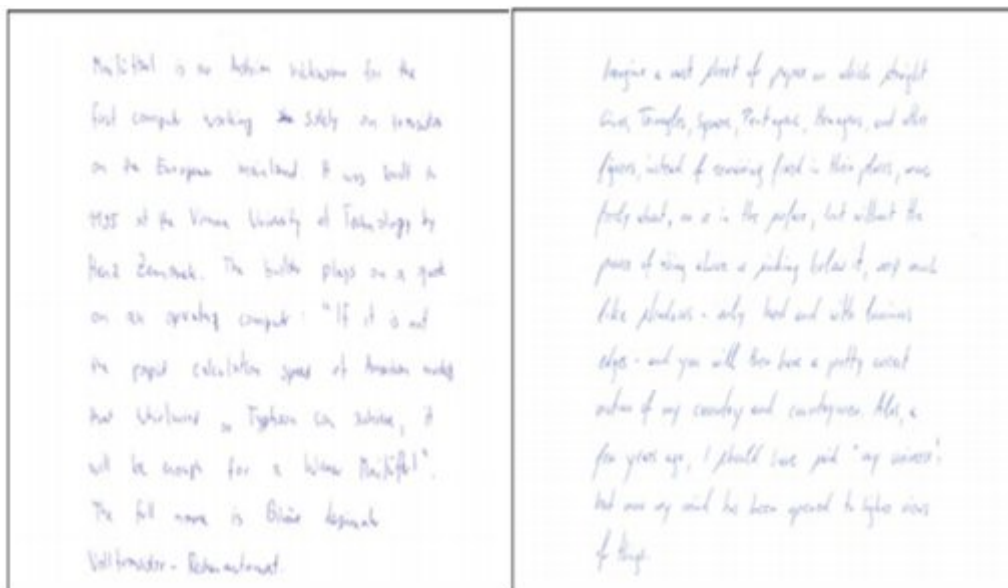 Mailüfterl is an Austrian nickname for the
first computer working solely on transistors
on the European mainland. It was built in
1955 at the Vienna University of Technology by
Heinz Zemanek. The builder plays on a quote
on an operating computer: "If it is not
the rapid calculation speed of American models
that Whirlwind or Typhoon can achieve, it
will be enough for a Wiener Mailüfterl".
The full name is Binär dezimaler
Volltransistor-Rechenautomat.
Imagine a vast sheet of paper on which straight
Lines, Triangles, Squares, Pentagons, Hexagons, and other
figures, instead of remaining fixed in their places, move
freely about, on or in the surface, but without the
power of rising above or sinking below it, very much
like shadows - only hard and with luminous
edges - and you will then have a pretty correct
notion of my country and countrymen. Alas, a
few years ago, I should have said "my universe":
but now my mind has been opened to higher views
of things.